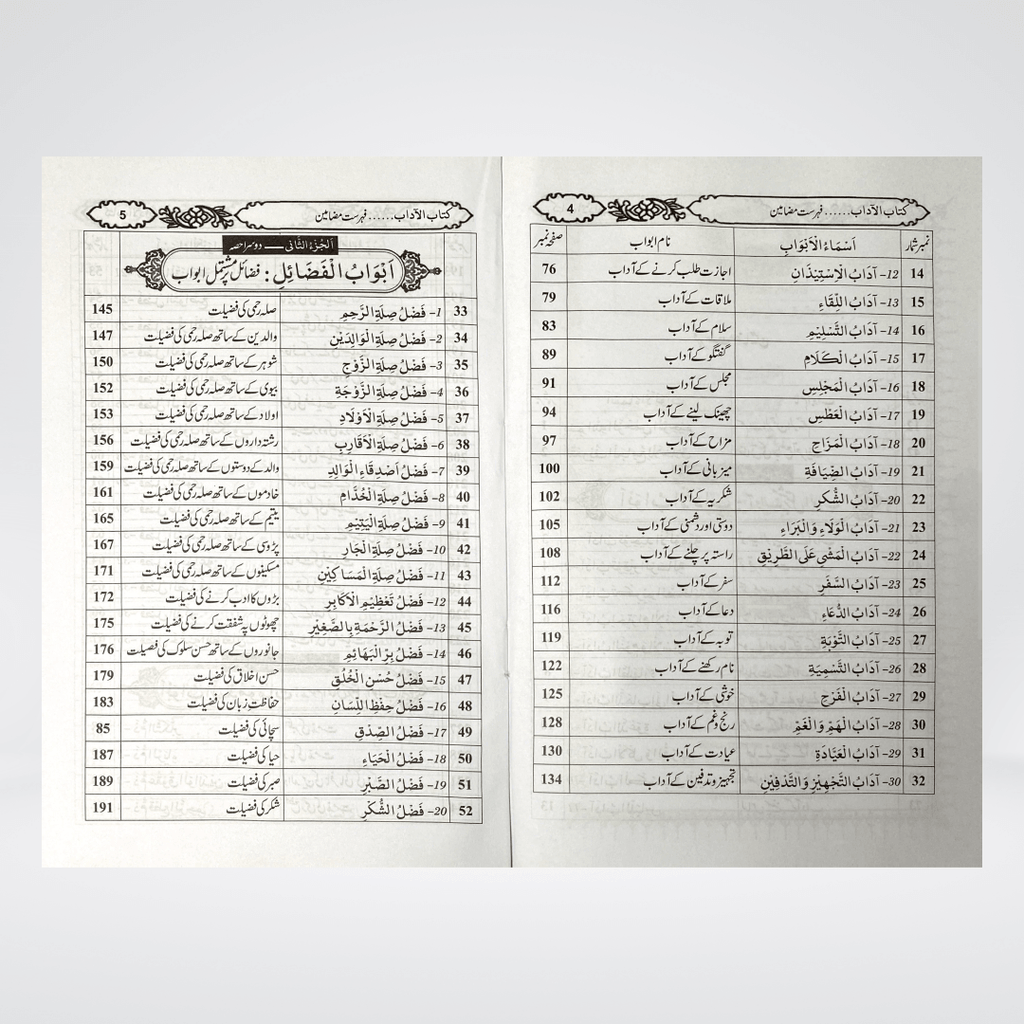 کتاب الآداب......فہرست مضامین 4
نمبر شمار اَسْمَاءُ الْاَبْوَابِ نام ابواب صفحہ نمبر
14 12- آدَابُ الْاِسْتِيْذَانِ اجازت طلب کرنے کے آداب 76
15 13- آدَابُ اللِّقَاءِ ملاقات کے آداب 79
16 14- آدَابُ التَّسْلِيْمِ سلام کے آداب 83
17 15- آدَابُ الْكَلَامِ گفتگو کے آداب 89
18 16- آدَابُ الْمَجْلِسِ مجلس کے آداب 91
19 17- آدَابُ الْعَطْسِ چھینک لینے کے آداب 94
20 18- آدَابُ الْمَزَاحِ مزاح کے آداب 97
21 19- آدَابُ الضِّيَافَةِ میزبانی کے آداب 100
22 20- آدَابُ الشُّكْرِ شکریہ کے آداب 102
23 21- آدَابُ الْوَلَاءِ وَالْبَرَاءِ دوستی اور دشمنی کے آداب 105
24 22- آدَابُ الْمَشْيِ عَلَى الطَّرِيْقِ راستہ پر چلنے کے آداب 108
25 23- آدَابُ السَّفَرِ سفر کے آداب 112
26 24- آدَابُ الدُّعَاءِ دعا کے آداب 116
27 25- آدَابُ التَّوْبَةِ توبہ کے آداب 119
28 26- آدَابُ التَّسْمِيَةِ نام رکھنے کے آداب 122
29 27- آدَابُ الْفَرَحِ خوشی کے آداب 125
30 28- آدَابُ الْهَمِّ وَالْغَمِّ رنج و غم کے آداب 128
31 29- آدَابُ الْعِيَادَةِ عیادت کے آداب 130
32 30- آدَابُ التَّجْهِيْزِ وَالتَّدْفِيْنِ تجہیز و تدفین کے آداب 134
کتاب الآداب......فہرست مضامین 5
اَلْجُزْءُ الثَّانِی —— دوسرا حصہ
اَبْوَابُ الْفَضَائِلِ: فضائل پر مشتمل ابواب
33 1- فَضْلُ صِلَةِ الرَّحِمِ صلہ رحمی کی فضیلت 145
34 2- فَضْلُ صِلَةِ الْوَالِدَيْنِ والدین کے ساتھ صلہ رحمی کی فضیلت 147
35 3- فَضْلُ صِلَةِ الزَّوْجِ شوہر کے ساتھ صلہ رحمی کی فضیلت 150
36 4- فَضْلُ صِلَةِ الزَّوْجَةِ بیوی کے ساتھ صلہ رحمی کی فضیلت 152
37 5- فَضْلُ صِلَةِ الْاَوْلَادِ اولاد کے ساتھ صلہ رحمی کی فضیلت 153
38 6- فَضْلُ صِلَةِ الْاَقَارِبِ رشتہ داروں کے ساتھ صلہ رحمی کی فضیلت 156
39 7- فَضْلُ اَصْدِقَاءِ الْوَالِدِ والد کے دوستوں کے ساتھ صلہ رحمی کی فضیلت 159
40 8- فَضْلُ صِلَةِ الْخُدَّامِ خادموں کے ساتھ صلہ رحمی کی فضیلت 161
41 9- فَضْلُ صِلَةِ الْيَتِيْمِ یتیم کے ساتھ صلہ رحمی کی فضیلت 165
42 10- فَضْلُ صِلَةِ الْجَارِ پڑوسی کے ساتھ صلہ رحمی کی فضیلت 167
43 11- فَضْلُ صِلَةِ الْمَسَاكِيْنِ مسکینوں کے ساتھ صلہ رحمی کی فضیلت 171
44 12- فَضْلُ تَعْظِيْمِ الْاَكَابِرِ بڑوں کا ادب کرنے کی فضیلت 172
45 13- فَضْلُ الرَّحْمَةِ بِالصَّغِيْرِ چھوٹوں پہ شفقت کرنے کی فضیلت 175
46 14- فَضْلُ بِرِّ الْبَهَائِمِ جانوروں کے ساتھ حسن سلوک کی فضیلت 176
47 15- فَضْلُ حُسْنِ الْخُلُقِ حسن اخلاق کی فضیلت 179
48 16- فَضْلُ حِفْظِ اللِّسَانِ حفاظت زبان کی فضیلت 183
49 17- فَضْلُ الصِّدْقِ سچائی کی فضیلت 85
50 18- فَضْلُ الْحَيَاءِ حیا کی فضیلت 187
51 19- فَضْلُ الصَّبْرِ صبر کی فضیلت 189
52 20- فَضْلُ الشُّكْرِ شکر کی فضیلت 191